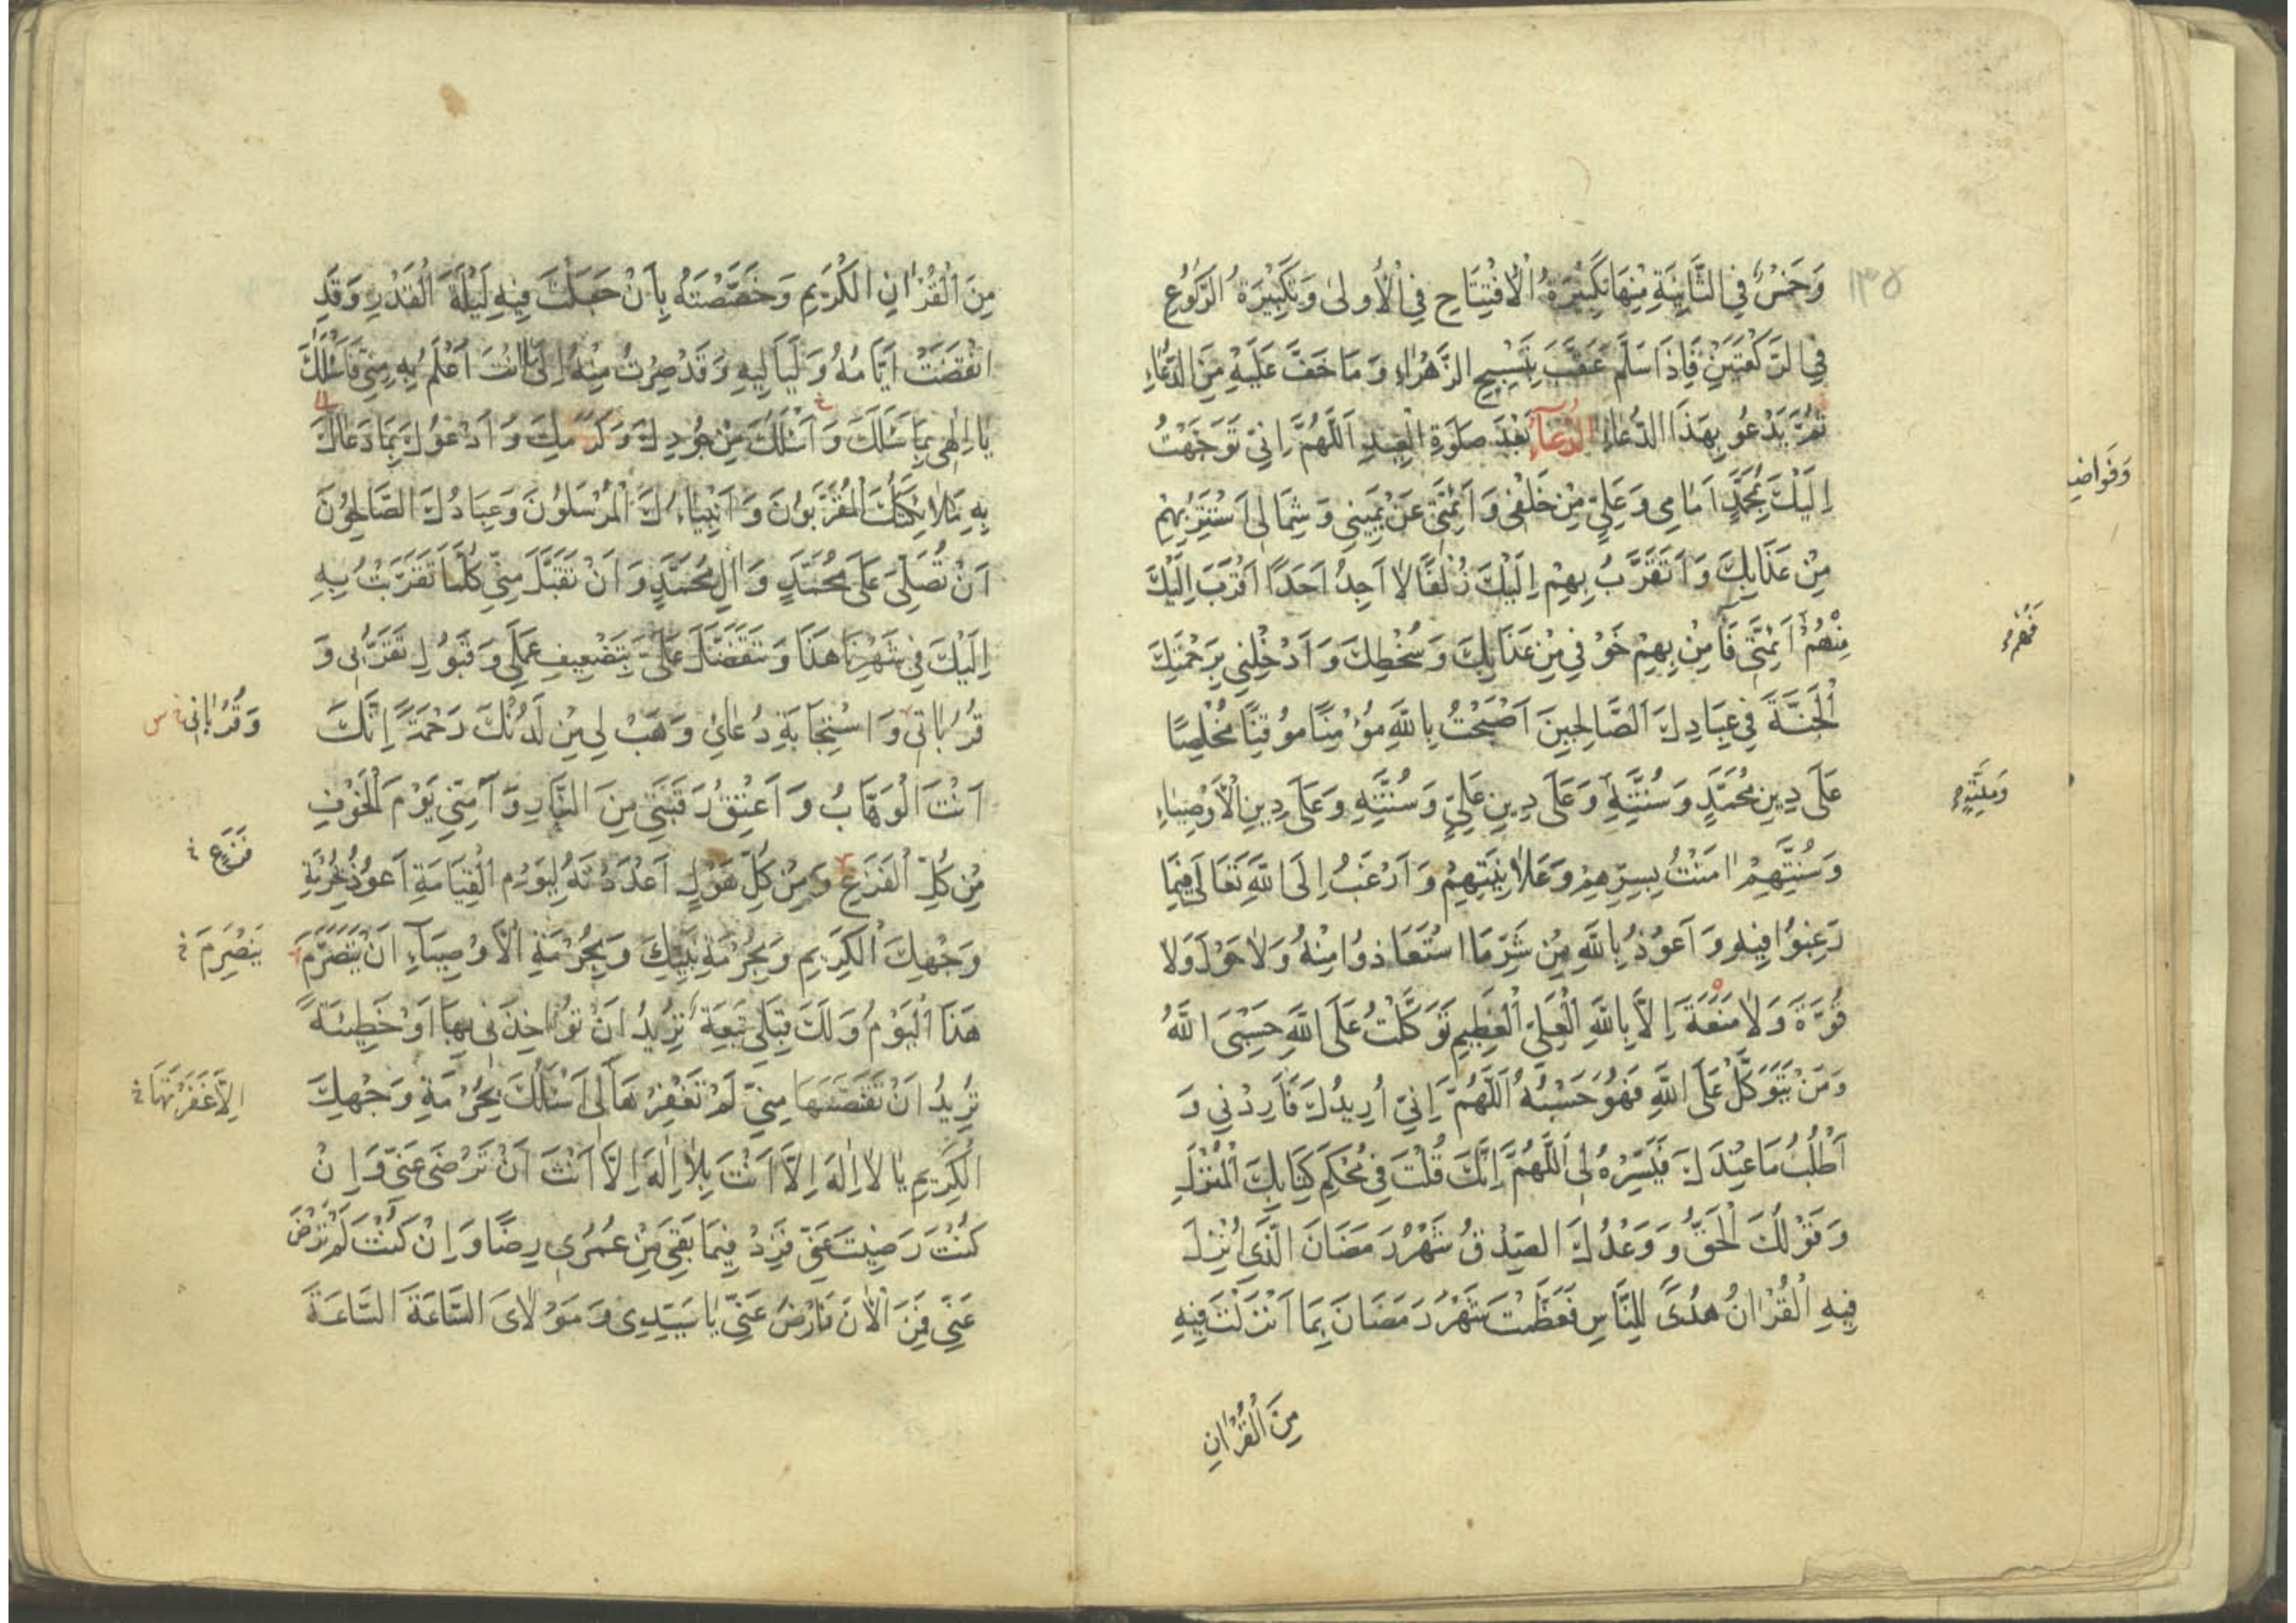 ١٣٥
وَخَمْسٌ فِي الثَّانِيَةِ مِنْهَا تَكْبِيْرَةُ الْاِفْتِتَاحِ فِي الْأُولىٰ وَتَكْبِيْرَةُ الرُّكُوعِ
فِي الرَّكْعَتَيْنِ فَاِذَا سَلَّمَ عَقَّبَ بِتَسْبِيحِ الزَّهْرَاءِ وَمَا خَفَّ عَلَيْهِ مِنَ الدُّعَاءِ
ثُمَّ يَدْعُو بِهَذَا الدُّعَاءِ الدُّعَآءُ بَعْدَ صَلٰوةِ الْعِيدِ اَللّٰهُمَّ اِنِّي تَوَجَّهْتُ
اِلَيْكَ بِمُحَمَّدٍ اَمَامِى وَعَلِيٍّ مِنْ خَلْفِى وَاَئِمَّتِى عَنْ يَمِينِى وَشِمَالِى اَسْتَتِرُ بِهِمْ
مِنْ عَذَابِكَ وَاَتَقَرَّبُ بِهِمْ اِلَيْكَ زُلْفًا لَا اَجِدُ اَحَدًا اَقْرَبَ اِلَيْكَ
مِنْهُمْ اَئِمَّتِى فَآمِنْ بِهِمْ خَوْفِى مِنْ عَذَابِكَ وَسُخْطِكَ وَاَدْخِلْنِي بِرَحْمَتِكَ
فَهُمْ
الْجَنَّةَ فِي عِبَادِكَ الصَّالِحِينَ اَصْبَحْتُ بِاللّٰهِ مُؤْمِنًا مُوقِنًا مُخْلِصًا
عَلَى دِينِ مُحَمَّدٍ وَسُنَّتِهِ وَعَلَى دِينِ عَلِيٍّ وَسُنَّتِهِ وَعَلَى دِينِ الْاَوْصِيَاءِ
وَسُنَّتِهِمْ اٰمَنْتُ بِسِرِّهِمْ وَعَلَانِيَتِهِمْ وَاَرْغَبُ اِلَى اللّٰهِ تَعَالَى فِيمَا
رَغِبُوا فِيهِ وَاَعُوذُ بِاللّٰهِ مِنْ شَرِّ مَا اسْتَعَاذُوا مِنْهُ وَلَا حَوْلَ وَلَا
قُوَّةَ وَلَا مَنَعَةَ اِلَّا بِاللّٰهِ الْعَلِيِّ الْعَظِيمِ تَوَكَّلْتُ عَلَى اللّٰهِ حَسْبِىَ اللّٰهُ
وَمَنْ يَتَوَكَّلْ عَلَى اللّٰهِ فَهُوَ حَسْبُهُ اَللّٰهُمَّ اِنِّي اُرِيدُكَ فَاَرِدْنِي وَ
اَطْلُبُ مَا عِنْدَكَ فَيَسِّرْهُ لِى اَللّٰهُمَّ اِنَّكَ قُلْتَ فِي مُحْكَمِ كِتَابِكَ الْمُنْزَلِ
وَقَوْلُكَ الْحَقُّ وَوَعْدُكَ الصِّدْقُ شَهْرُ رَمَضَانَ الَّذِي اُنْزِلَ
فِيهِ الْقُرْاٰنُ هُدًى لِلنَّاسِ فَعَظَّمْتَ شَهْرَ رَمَضَانَ بِمَا اَنْزَلْتَ فِيهِ
مِنَ الْقُرْاٰنِ
مِنَ الْقُرْاٰنِ الْكَرِيمِ وَخَصَّصْتَهُ بِاَنْ جَعَلْتَ فِيهِ لَيْلَةَ الْقَدْرِ وَقَدِ
انْقَضَتْ اَيَّامُهُ وَلَيَالِيهِ وَقَدْ صِرْتُ مِنْهُ اِلَى مَا اَنْتَ اَعْلَمُ بِهِ مِنِّي فَاَسْئَلُكَ
يَا اِلٰهِى بِمَا سَئَلَكَ وَاَسْئَلُكَ مِنْ جُودِكَ وَكَرَمِكَ وَاَدْعُوكَ بِمَا دَعَاكَ
بِهِ مَلَائِكَتُكَ الْمُقَرَّبُونَ وَاَنْبِيَاءُكَ الْمُرْسَلُونَ وَعِبَادُكَ الصَّالِحُونَ
اَنْ تُصَلِّىَ عَلَى مُحَمَّدٍ وَاٰلِ مُحَمَّدٍ وَاَنْ تَقَبَّلَ مِنِّي كُلَّمَا تَقَرَّبْتُ بِهِ
اِلَيْكَ فِي شَهْرِنَا هَذَا وَتَتَفَضَّلَ عَلَىَّ بِتَضْعِيفِ عَمَلِي وَقَبُولِ تَقَرُّبِى وَ
قُرُبَاتِي وَاسْتِجَابَةِ دُعَائِي وَهَبْ لِي مِنْ لَدُنْكَ رَحْمَةً اِنَّكَ
وَقُرْبَانِى خ س
اَنْتَ الْوَهَّابُ وَاَعْتِقْ رَقَبَتِي مِنَ النَّارِ وَآمِنِّي يَوْمَ الْخَوْفِ
مِنْ كُلِّ الْفَزَعِ وَمِنْ كُلِّ هَوْلٍ اَعْدَدْتَهُ لِيَوْمِ الْقِيَامَةِ اَعُوذُ بِحُرْمَةِ
فَزَعٍ خ
وَجْهِكَ الْكَرِيمِ وَبِحُرْمَةِ نَبِيِّكَ وَبِحُرْمَةِ الْاَوْصِيَآءِ اَنْ يَتَصَرَّمَ
يَنْصَرِمَ خ
هَذَا الْيَوْمُ وَلَكَ قِبَلِى تَبِعَةٌ تُرِيدُ اَنْ تُؤَاخِذَنِى بِهَا اَوْ خَطِيئَةٌ
تُرِيدُ اَنْ تَقْتَصَّهَا مِنِّي لَمْ تَغْفِرْهَا لِى اَسْئَلُكَ بِحُرْمَةِ وَجْهِكَ
اِلَّا غَفَرْتَهَا خ
الْكَرِيمِ يَا لَا اِلٰهَ اِلَّا اَنْتَ بِلَا اِلٰهَ اِلَّا اَنْتَ اَنْ تَرْضَى عَنِّي وَاِنْ
كُنْتَ رَضِيتَ عَنِّي فَزِدْ فِيمَا بَقِيَ مِنْ عُمُرِى رِضًا وَاِنْ كُنْتَ لَمْ تَرْضَ
عَنِّي فَمِنَ الْاٰنَ فَارْضَ عَنِّي يَا سَيِّدِى وَمَوْلَاىَ السَّاعَةَ السَّاعَةَ